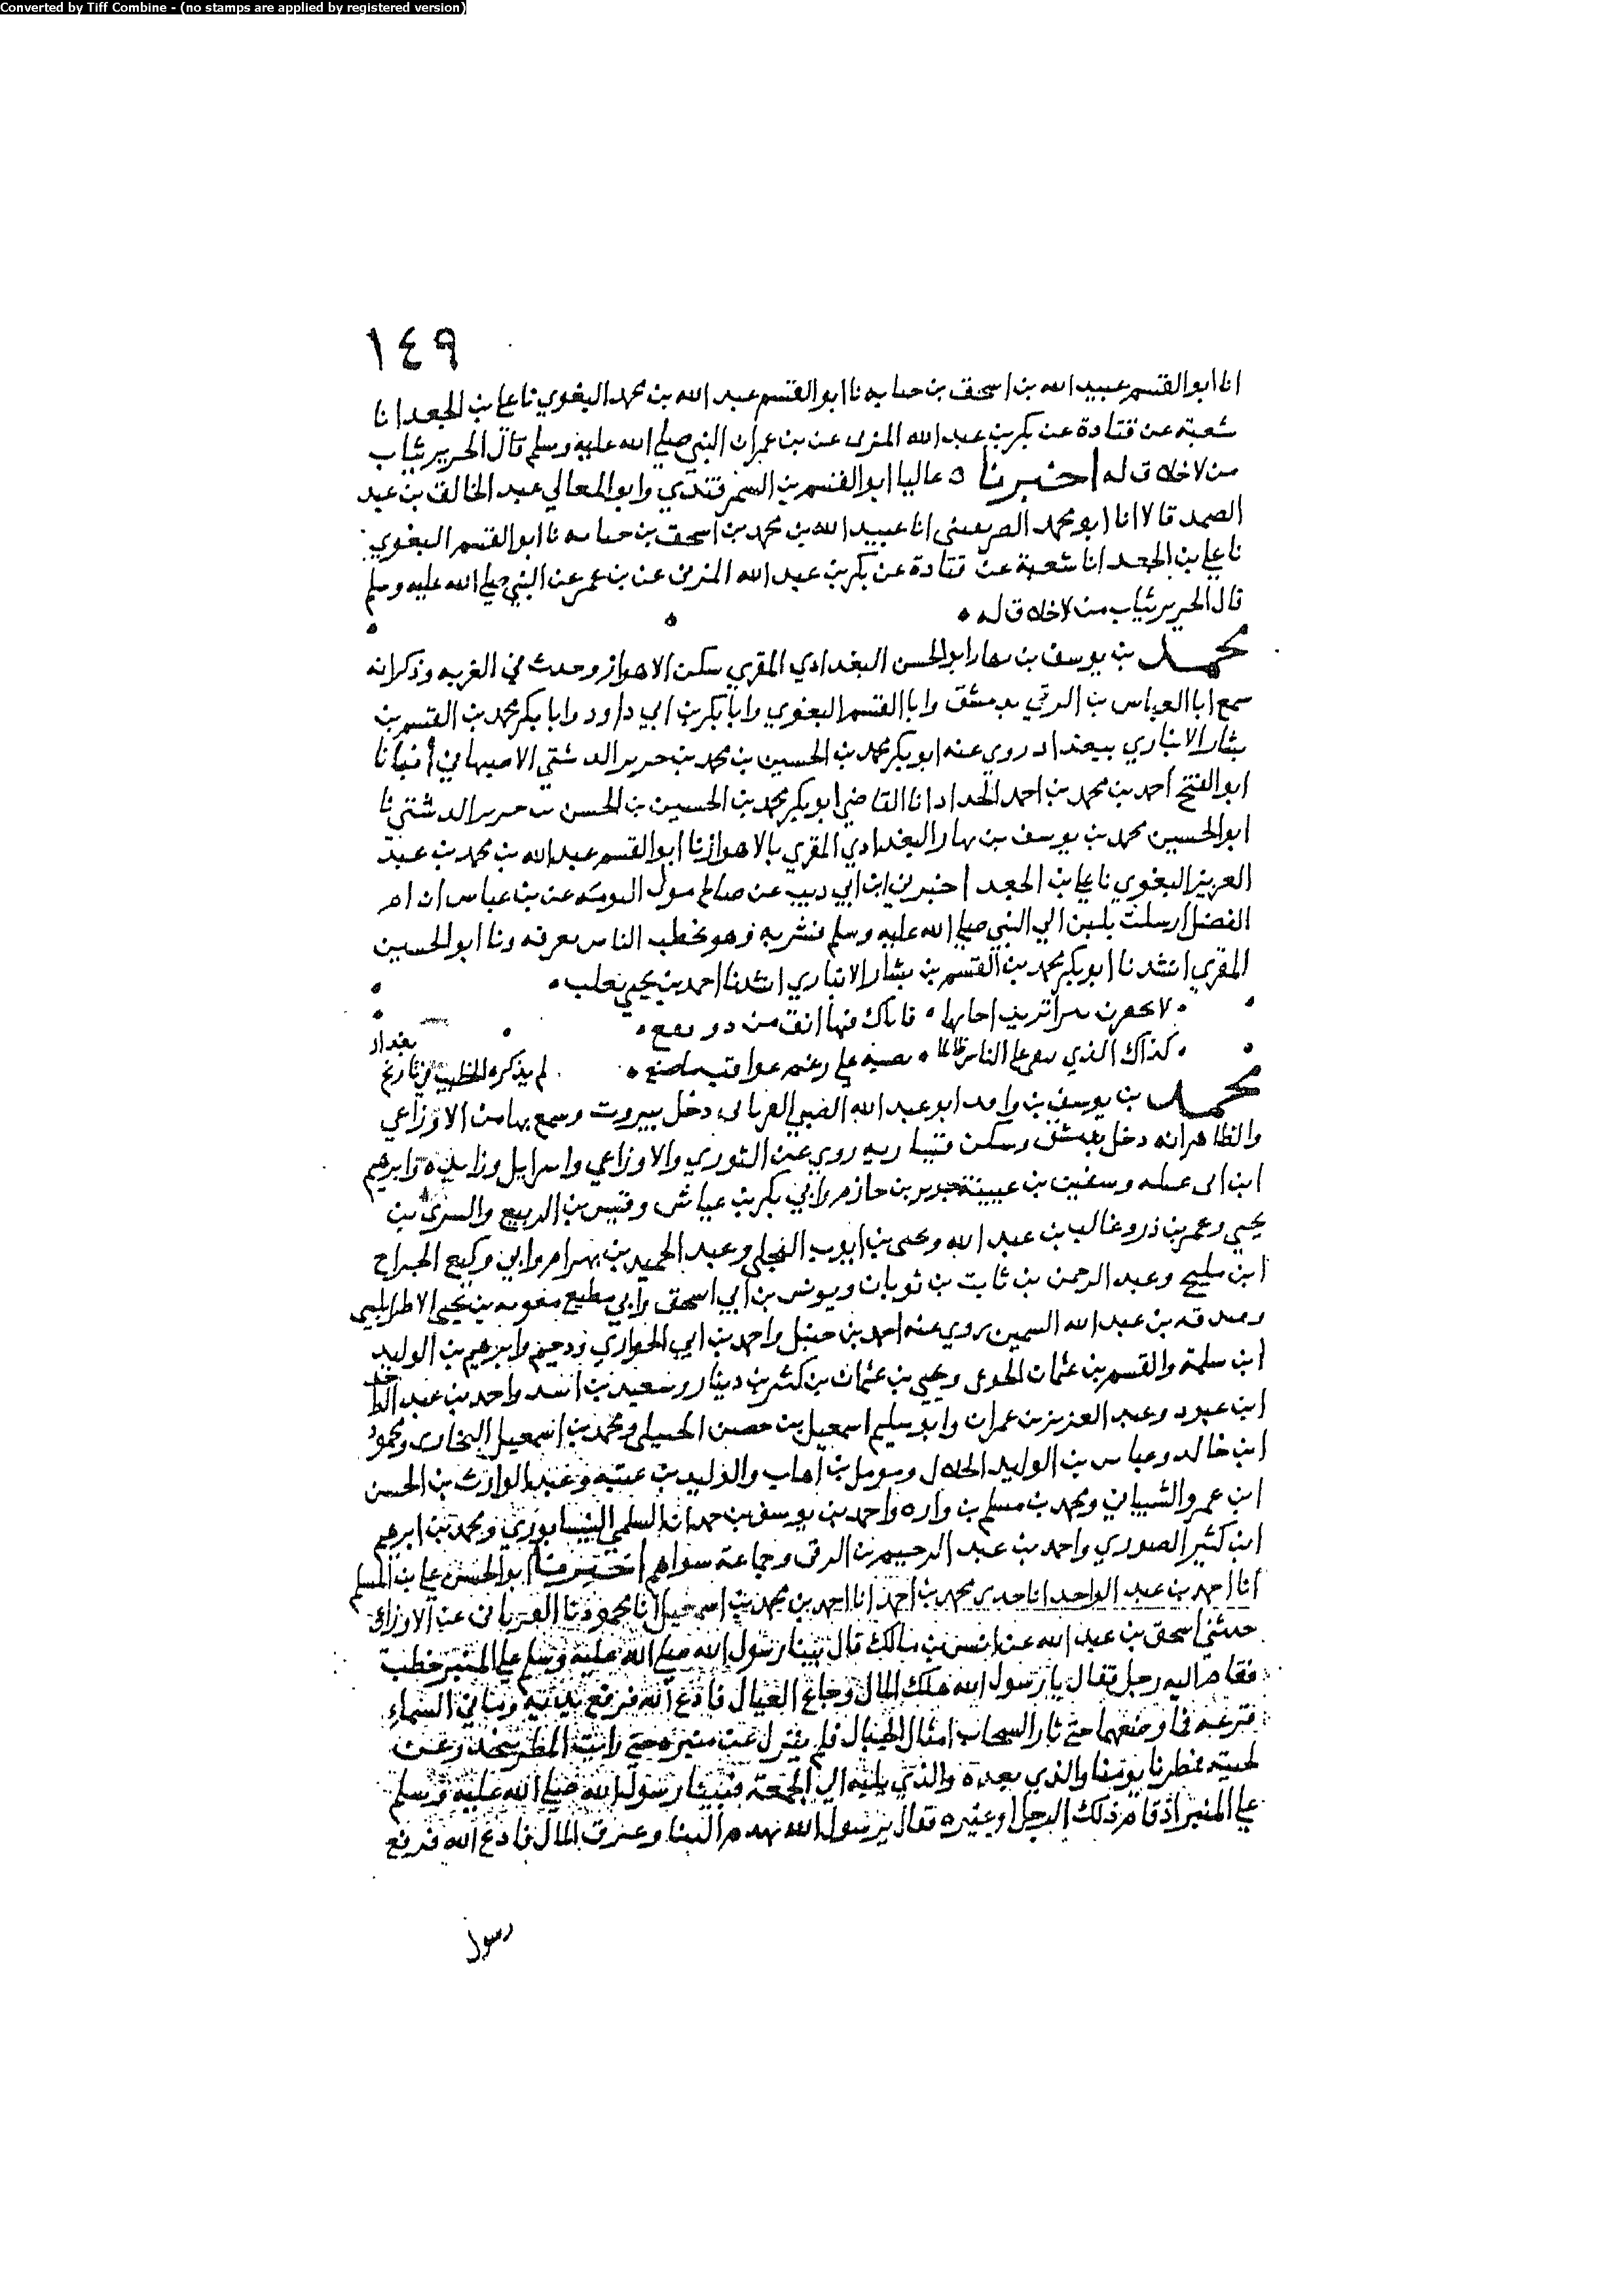 Converted by Tiff Combine - (no stamps are applied by registered version)
١٤٩
انا ابو القسم عبيد الله بن اسحق بن حبابه نا ابو القسم عبد الله بن محمد البغوي نا علي بن الجعد انا
شعبة عن قتادة عن بكر بن عبد الله المزني عن بن عمر ان النبي صلى الله عليه وسلم قال الحرير ثياب
من لا خلاق له اخبرنا ه عاليا ابو القسم بن السمرقندي وابو المعالي عبد الخالق بن عبد
الصمد قالا انا ابو محمد الصريفيني انا عبيد الله بن محمد بن اسحق بن حبابه نا ابو القسم البغوي
نا علي بن الجعد انا شعبة عن قتادة عن بكر بن عبد الله المزني عن بن عمر عن النبي صلى الله عليه وسلم
قال الحرير ثياب من لا خلاق له
محمد بن يوسف بن نهار ابو الحسن البغدادي المقري سكن الاهواز وحدث في الغربه وذكر انه
سمع ابا العباس بن الرقي بدمشق وابا القسم البغوي وابا بكر بن ابي داود وابا بكر محمد بن القسم بن
بشار الانباري ببغداد روي عنه ابو بكر محمد بن الحسين بن محمد بن جرير الدشتي الاصبهاني أنبانا
ابو الفتح احمد بن محمد بن احمد الحداد انا القاضي ابو بكر محمد بن الحسين بن الحسن بن جرير الدشتي نا
ابو الحسين محمد بن يوسف بن نهار البغدادي المقري بالاهواز نا ابو القسم عبد الله بن محمد بن عبد
العزيز البغوي نا علي بن الجعد اخبرني ابن ابي ذيب عن صالح مولى التومه عن بن عباس ان ام
الفضل ارسلت بلبن الي النبي صلى الله عليه وسلم فشربه وهو يخطب الناس بعرفه ونا ابو الحسين
المقري انشدنا ابو بكر محمد بن القسم بن بشار الانباري انشدنا احمد بن يحيى ثعلب
لا تحفرن بيرا تريد اخا بها فانك فيها انت من دونه تقع
كذاك الذي يبغي علي الناس ظالما تصبه علي رغم عواقب ما صنع لم يذكره الخطيب في تاريخ
بغداد
محمد بن يوسف بن واقد ابو عبد الله الضبي الفريابي دخل بيروت وسمع بها من الاوزاعي
والظاهر انه دخل دمشق وسكن قيساريه روي عن الثوري والاوزاعي واسرايل وزايدة وابرهيم
ابن ابي عبله وسفين بن عيينة جرير بن حازم وابي بكر بن عياش وقيس بن الربيع والسري بن
يحيي وعمر بن ذر وغالب بن عبد الله ويحيى بن ايوب البجلي وعبد الحميد بن بهرام وابي وكيع الجراح
ابن مليح وعبد الرحمن بن ثابت بن ثوبان ويونس بن ابي اسحق وابي مطيع معويه بن يحيى الاطرابلسي
وصدقه بن عبد الله السمين روي عنه احمد بن حنبل واحمد بن ابي الحواري ودحيم وابرهيم بن الوليد
ابن سلمة والقسم بن عثمان الجوعي ويحيي بن عثمان بن كثير بن دينار وسعيد بن اسد واحمد بن عبد الواحد
ابن عبود وعبد العزيز بن عمران وابو سليم اسمعيل بن حصن الجبيلي ومحمد بن اسمعيل البخاري ومحمود
ابن خالد وعباس بن الوليد الخلال ومومل بن اهاب والوليد بن عتبه وعبد الوارث بن الحسن
ابن عمرو الشيباني ومحمد بن مسلم بن واره واحمد بن يوسف بن حمدان السلمي النيسابوري ومحمد بن ابرهيم
ابن كثير الصوري واحمد بن عبد الرحيم بن البرقي وجماعة سواهم اخبرنا ابو الحسن علي بن المسلم
انا احمد بن عبد الواحد انا جدي محمد بن احمد انا احمد بن محمد بن اسمعيل انا محمود نا الفريابي عن الاوزاعي
حدثني اسحق بن عبد الله عن انس بن مالك قال بينا رسول الله صلى الله عليه وسلم علي المنبر يخطب
فقام اليه رجل فقال يا رسول الله هلك المال وجاع العيال فادع الله فرفع يديه وما في السماء
قزعه فما وضعهما حتى ثار السحاب امثال الجبال فلم ينزل عن منبره حتى رايت المطر يتحدر عن
لحيته فمطرنا يومنا والذي بعده والذي يليه الي الجمعة فبينا رسول الله صلى الله عليه وسلم
علي المنبر اذ قام ذلك الرجل او غيره فقال يرسول الله تهدم البنا وغرق المال فادع الله فرفع
رسول